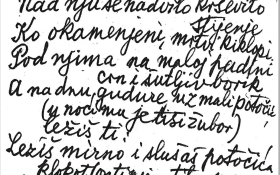 Nad nju se nadvilo krševito
stijenje
Ko okamenjeni, mrtvi kiklopi.
Pod njima na maloj padini
crn i šutljiv borik
A na dnu gudure uz mali potočić
(u noći mu je tiši žubor)
ležiš ti.
Ležiš mirno i slušaš potočić,